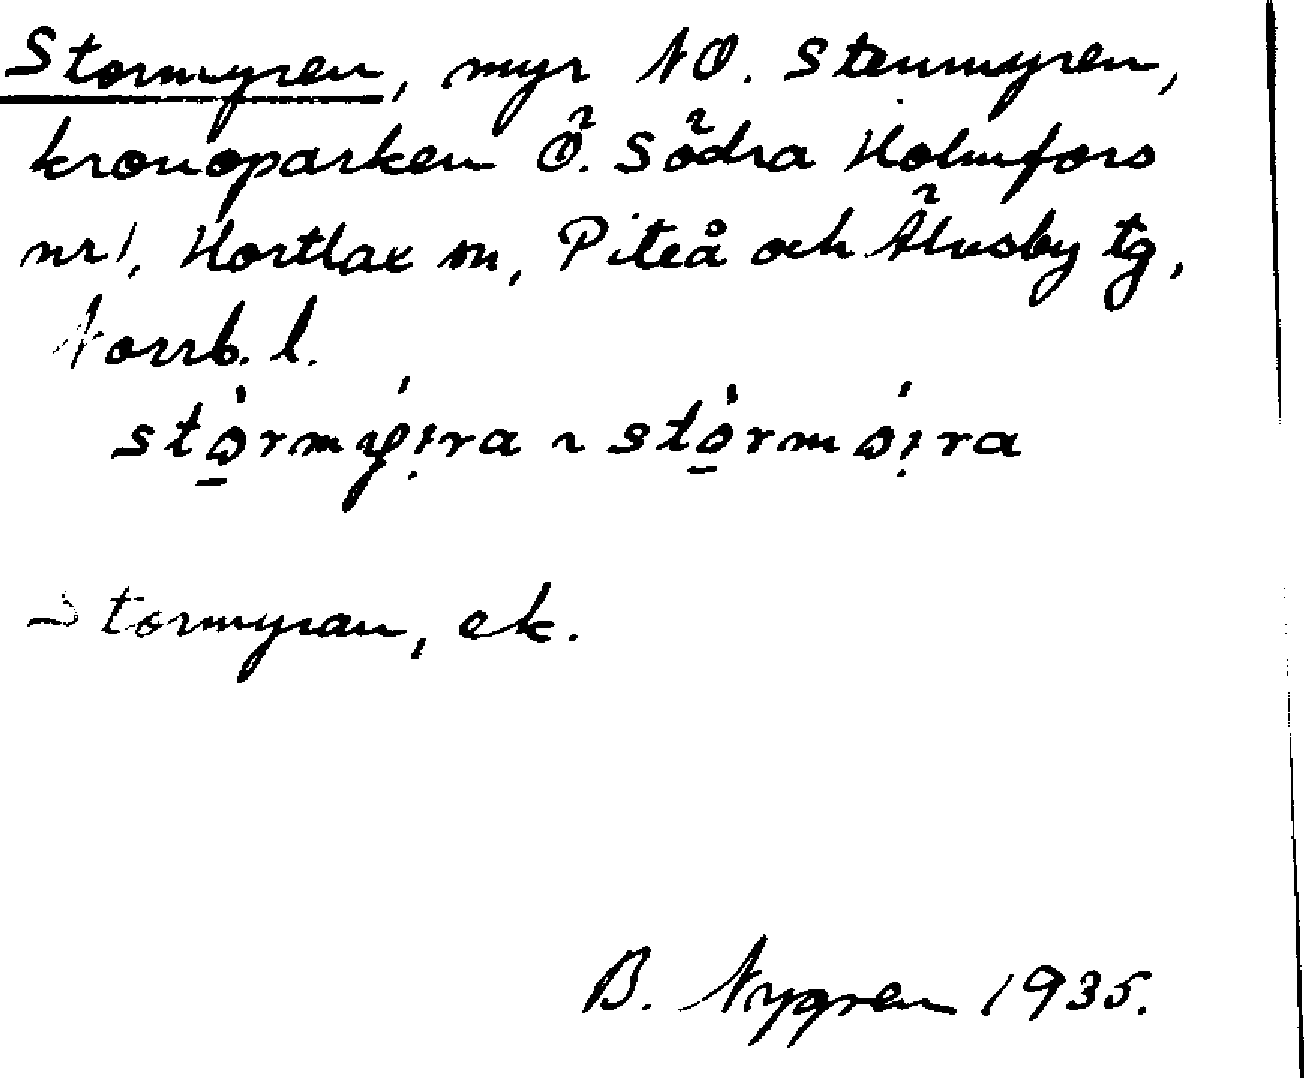 Stormyren, myr NO. Stenmyren,
kronoparken Ö. Södra Holmfors
nr 1, Hortlax sn, Piteå och Älvsby tg,
Norrb. l.
stò̱rmýi̩ra ~ stò̱rmói̩ra
Stormyran, ek.
B. Nygren 1935.